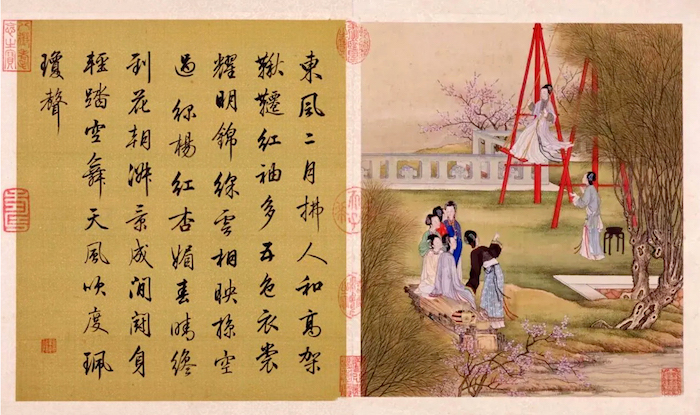 東風二月拂人和高架
鞦韆紅袖多五色衣裳
耀明錦綵雲相映掠空
過綠楊紅杏媚春晴纔
到花朝淑景成閒鬭身
輕踏空舞天風吹度珮
瓊聲